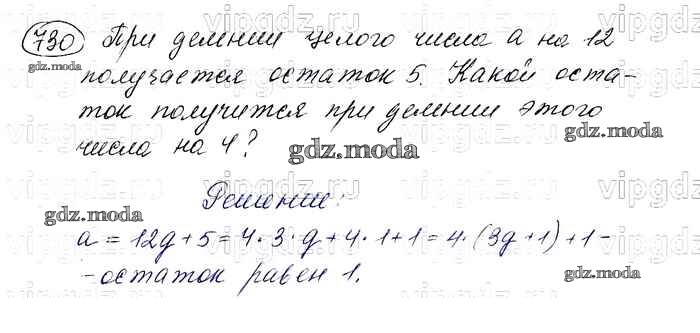 730 При делении целого числа a на 12
получается остаток 5. Какой оста-
ток получится при делении этого
числа на 4?
gdz.moda
gdz.moda
Решение:
gdz.moda
a = 12g + 5 = 4 · 3 · g + 4 · 1 + 1 = 4 · (3g + 1) + 1 -
- остаток равен 1.
gdz.moda